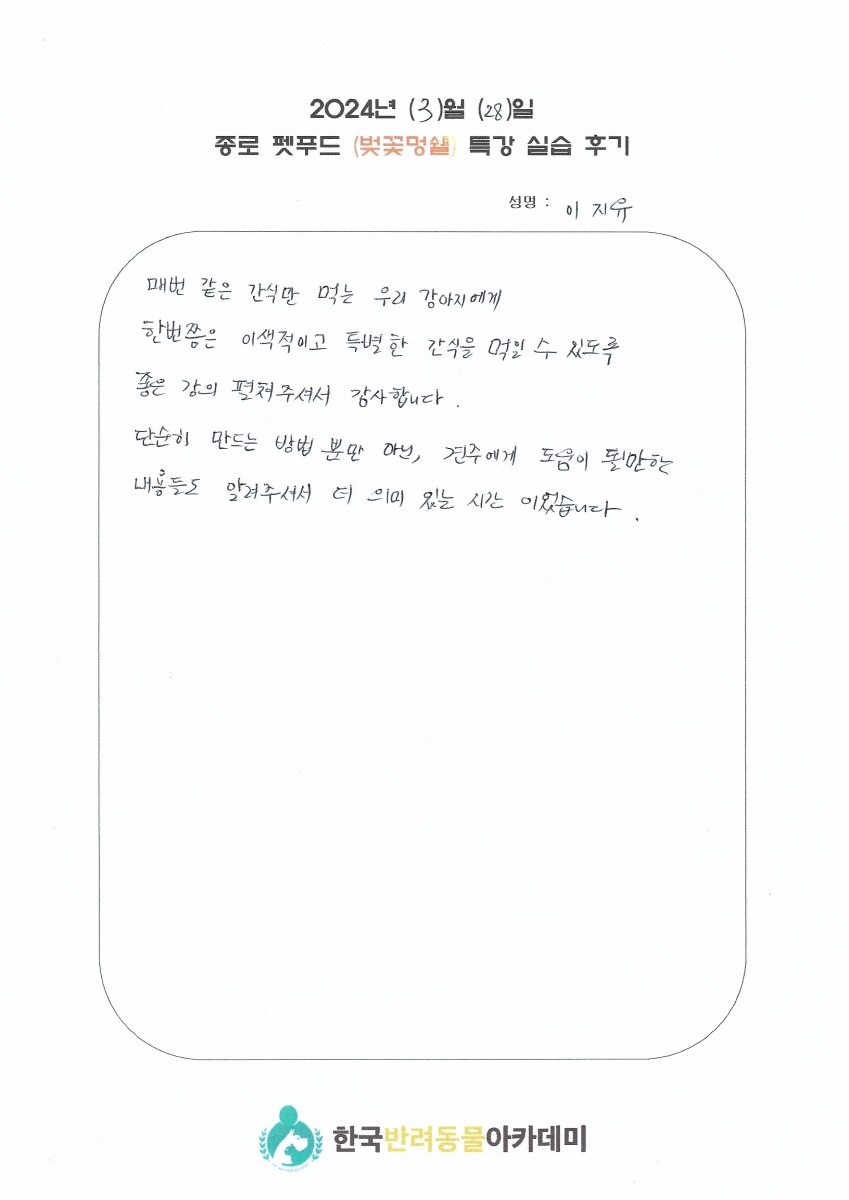 2024년 (3)월 (28)일
종로 펫푸드 (벚꽃멍쉘) 특강 실습 후기
성명 : 이지유
매번 같은 간식만 먹는 우리 강아지에게
한번쯤은 이색적이고 특별한 간식을 먹일 수 있도록
좋은 강의 펼쳐주셔서 감사합니다.
단순히 만드는 방법 뿐만 아닌, 견주에게 도움이 될만한
내용들도 알려주셔서 더 의미 있는 시간 이었습니다.
한국반려동물아카데미